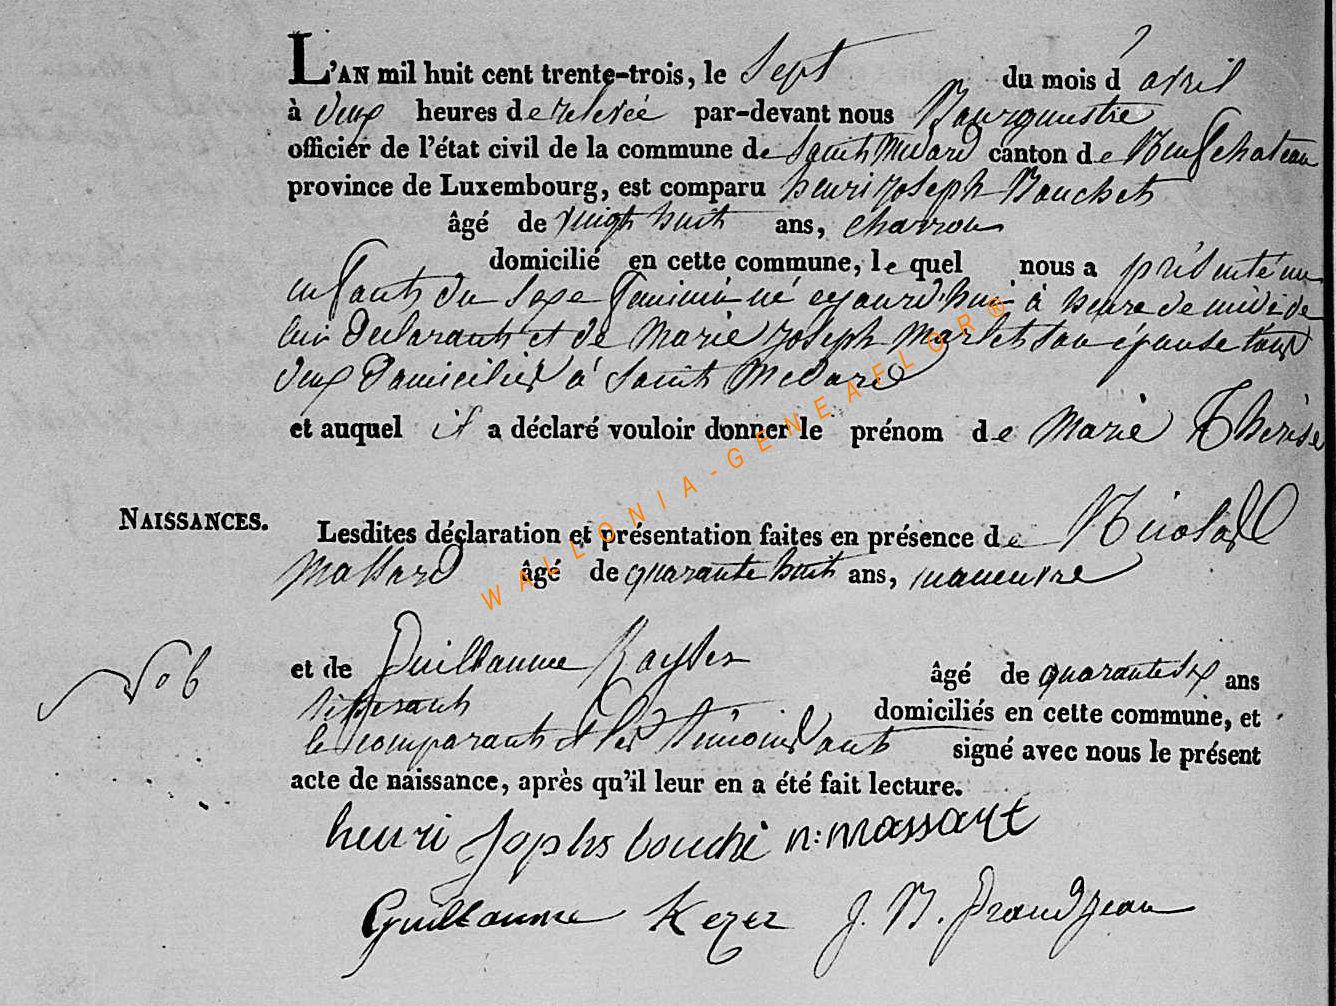 L'AN mil huit cent trente-trois, le Sept du mois d'avril
à deux heures de relevée par-devant nous Bourgmestre
officier de l'état civil de la commune de Saint Médard canton de Neufchateau
province de Luxembourg, est comparu henri joseph Bouchet
âgé de vingt huit ans, charron
domicilié en cette commune, le quel nous a présenté un
enfant du Sexe feminin né cejourd'hui à heure de midi de
lui declarant et de Marie joseph Marlet son épouse tous
deux domiciliés à Saint Médard
et auquel il a déclaré vouloir donner le prénom de Marie Thérèse
NAISSANCES.
Lesdites déclaration et présentation faites en présence de Nicolas
Massard âgé de quarante huit ans, maneuvre
No 6
et de Guillaume Kayser âgé de quarante six ans
domiciliés en cette commune, et
le comparant et les témoins ont signé avec nous le présent
acte de naissance, après qu'il leur en a été fait lecture.
henri Jophs bouché n: massart
Guillaume Kezer J. B. Grandjean
WALLONIA-GENEAFLOR®